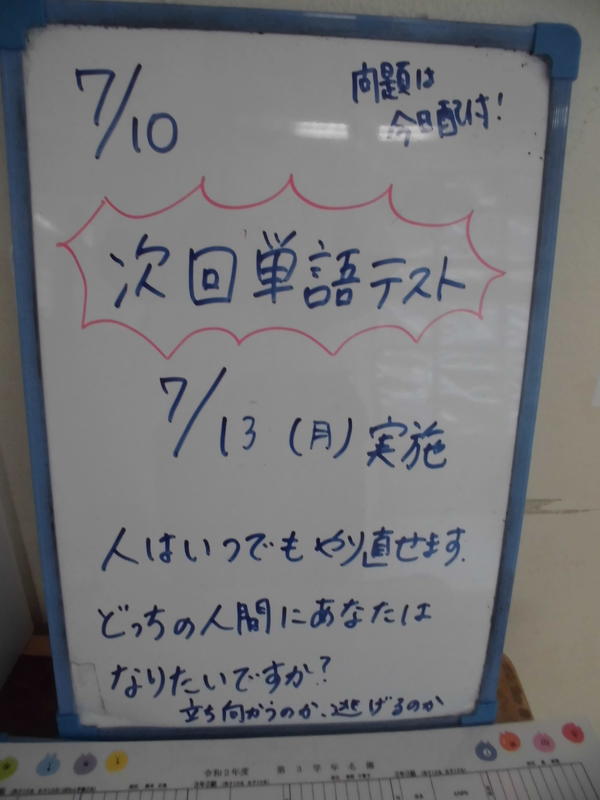 7/10
問題は
今日配付!
次回単語テスト
7/13 (月) 実施
人はいつでもやり直せます.
どっちの人間にあなたは
なりたいですか?
立ち向かうのか、逃げるのか
令和2年度 第3学年名簿